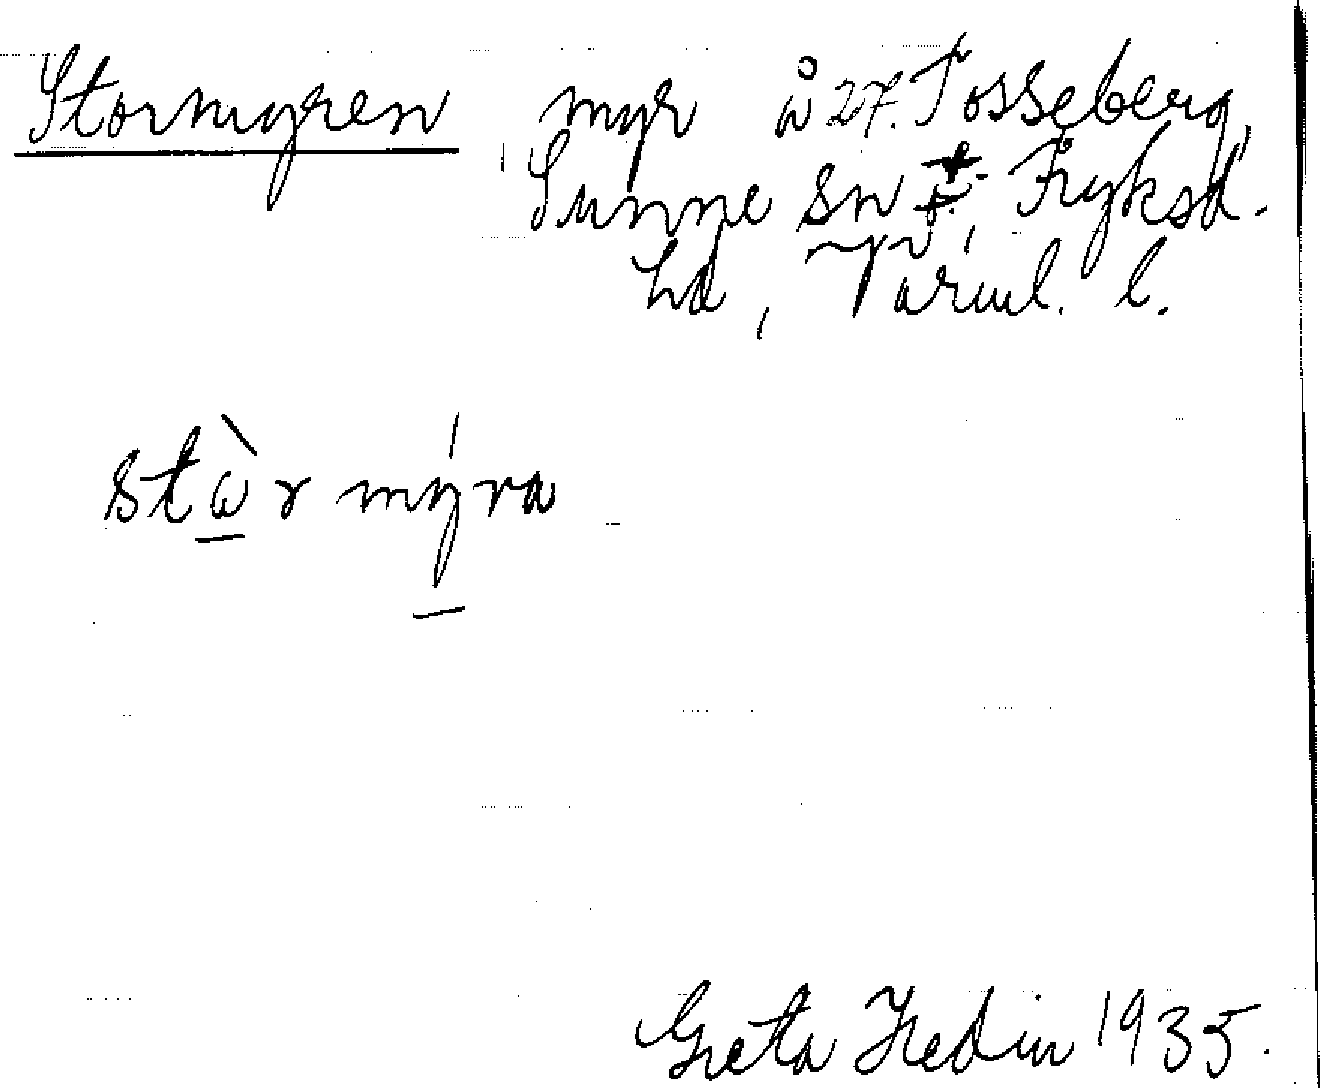 Stormyren myr å 27. Tosseberg,
Sunne sn, Fryksd.
hd, Värml. l.
stὼr mýra
Greta Hedin 1935.